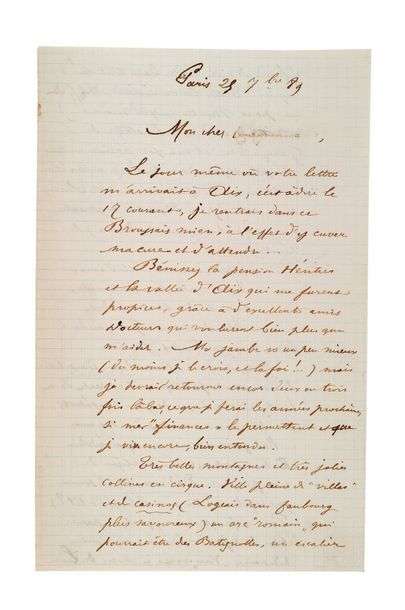 Paris 25 7bre 89
Mon cher
Le jour même où votre lettre
m'arrivait à Aix, c'est à dire le
17 courant, je rentrais dans ce
Broussais mien, à l'effet d'y cuver
ma cure et d'attendre...
Bénissez la pension Héritier
et la vallée d'Aix qui me furent
propices, grâce à d'excellents amis
Docteurs qui voulurent bien plus que
m'aider. Ma jambe va un peu mieux
(du moins je le crois, et la foi!...) mais
je devrai retourner encor deux ou trois
fois là bas, ce que je ferai les années prochaines
si mes "finances" le permettent et que
je vive encore, bien entendu.
Très belles montagnes et très jolies
collines en cirque. Ville pleine de "villas"
et de casinos (Logeais dans faubourg
plus savoureux) un arc "romain" qui
pourrait être des Batignolles, un escalier